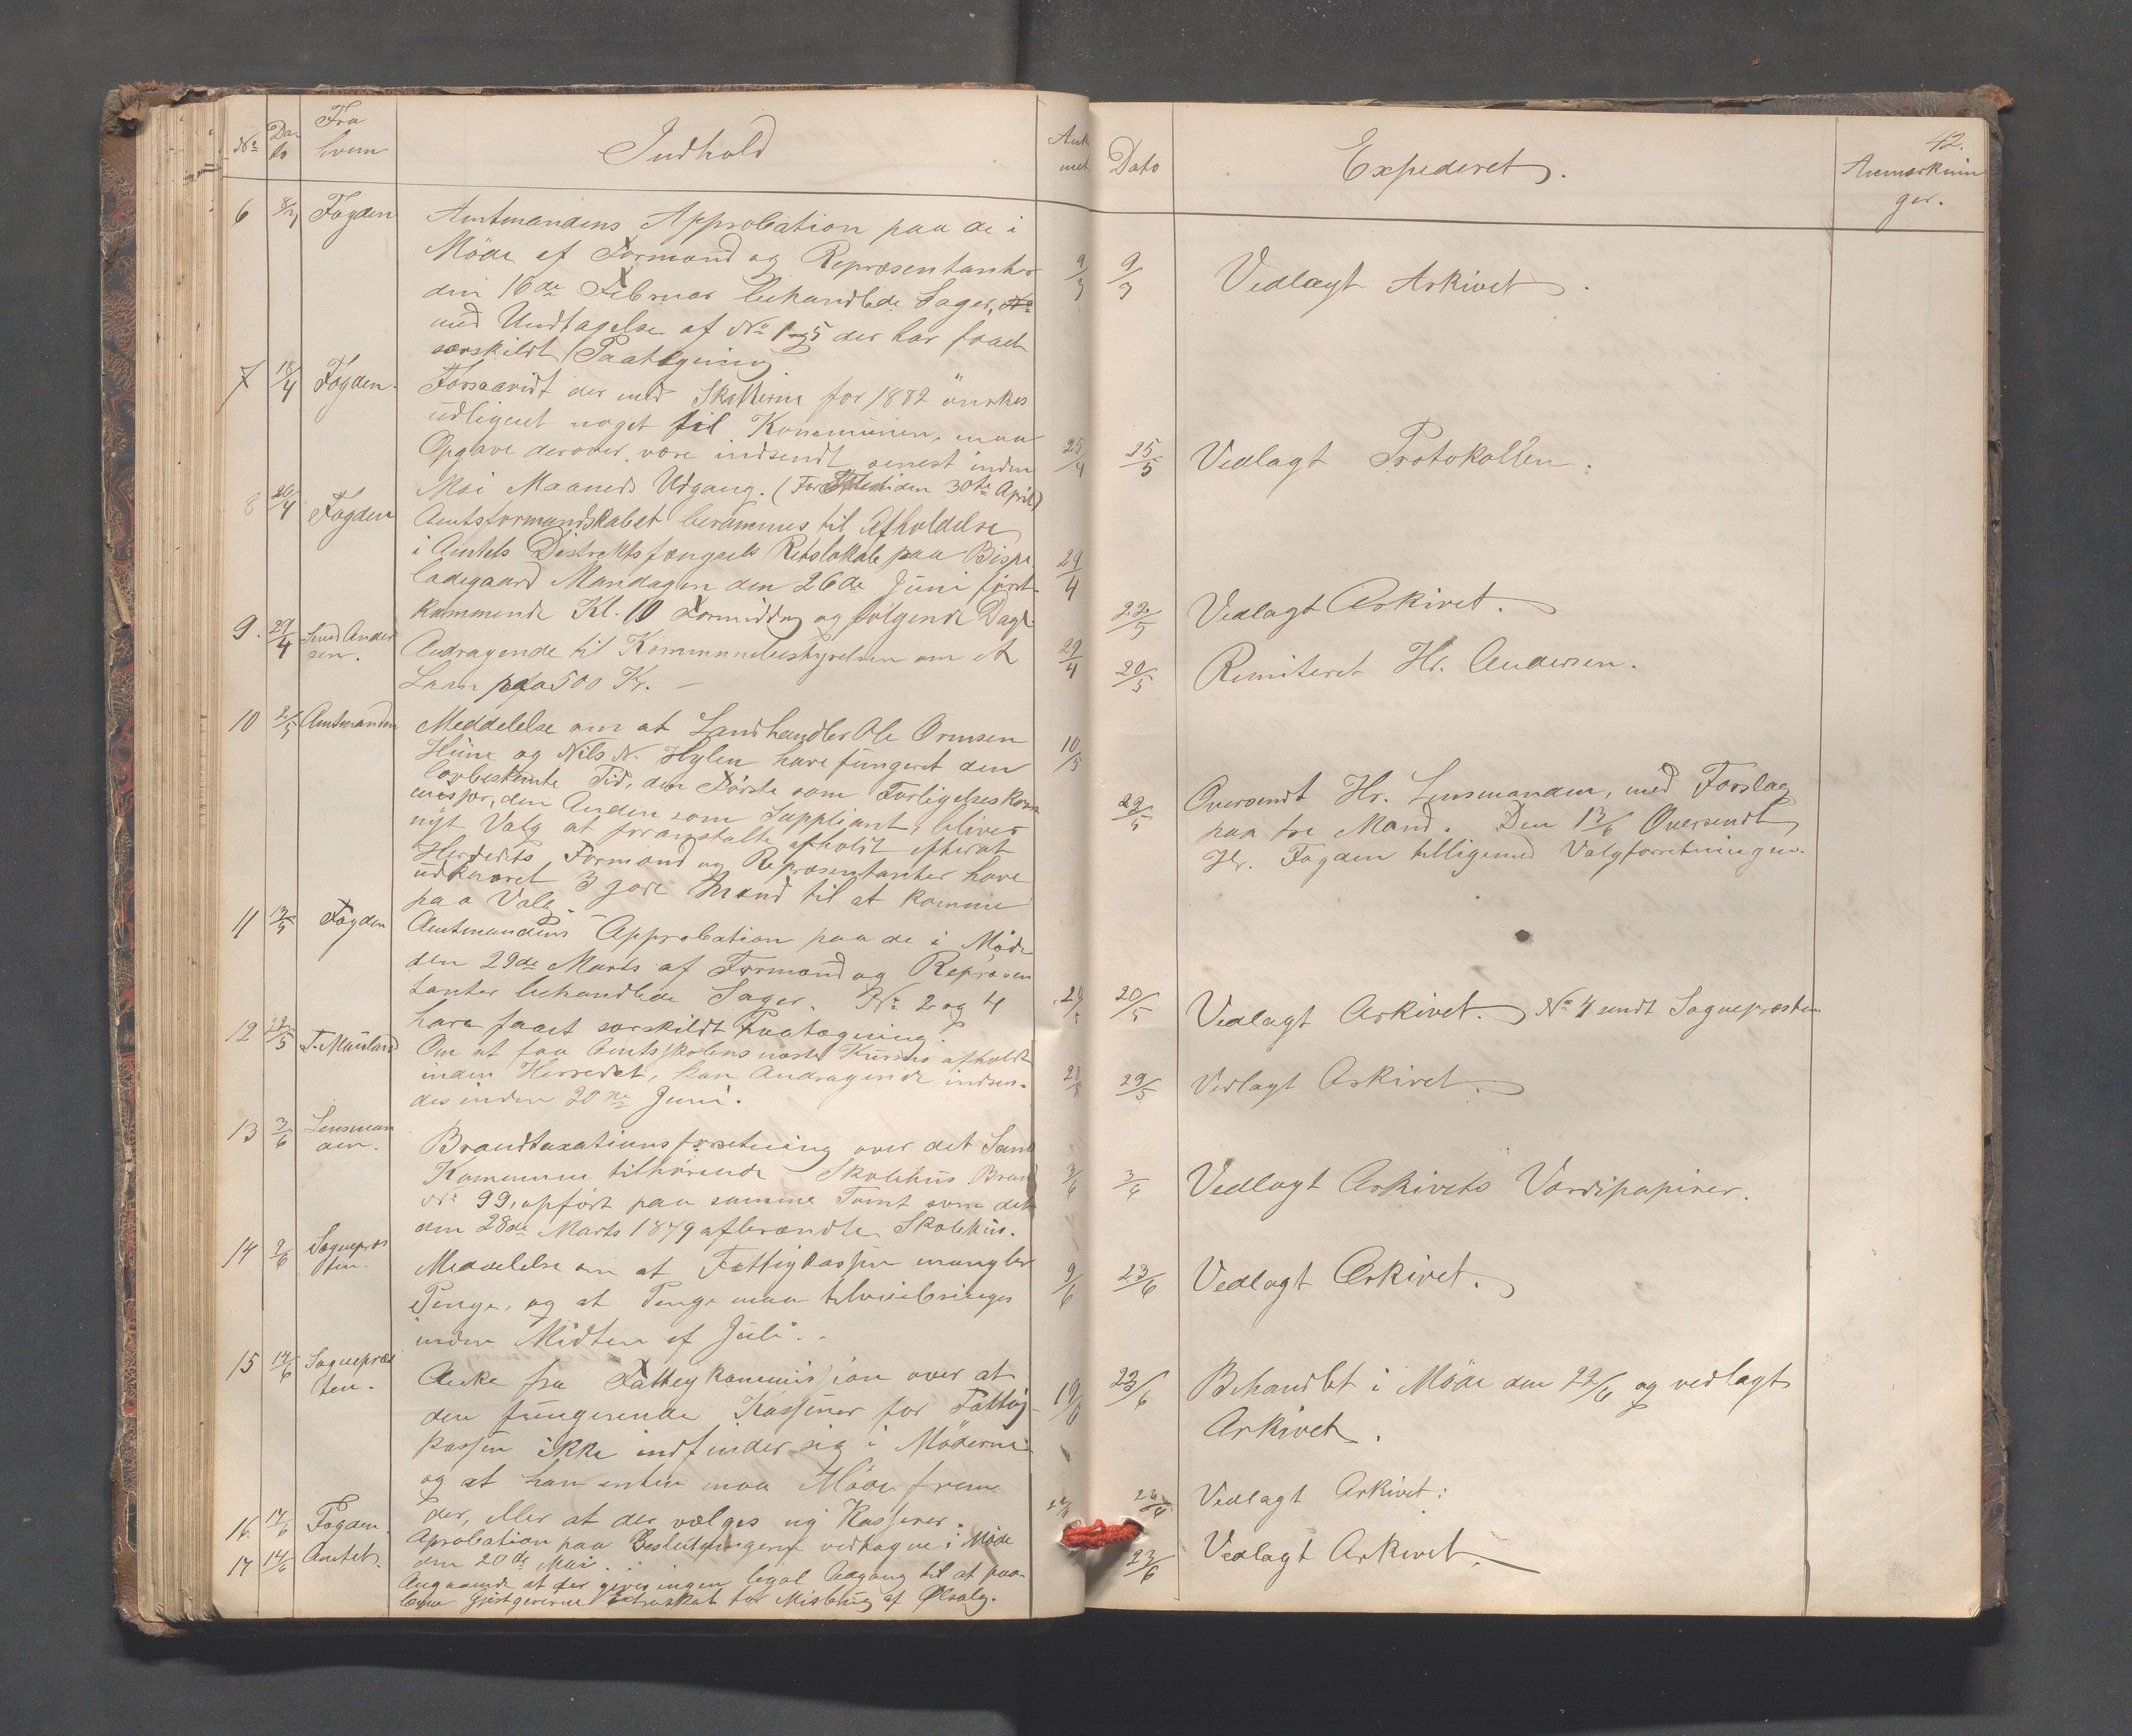 No
Da-
to
Fra
hvem
Indhold
Ank.
met
6 8/3 Fogden
Amtmandens Approbation paa de i
Möde af Formænd og Repræsentanter
den 16de Februar behandlede Sager,
med Undtagelse af No 1 og 5 der har faaet
særskildt Paategning
9/3
7 18/4 Fogden.
Forsaavidt der med Skatterne for 1882 önskes
udlignet noget til Kommunen, maa
Opgave derover være indsendt senest inden
Mai Maaneds Udgang. (For den 30te April)
25/4
8 20/4 Fogden
Amtsformandskabet berammes til Afholdelse
i Amtets Distriktsfængsels Retslokale paa Bispe
ladegaard Mandagen den 26de Juni först-
kommende Kl. 10 Formiddag og følgende Dage
29/4
9. 29/4 Svend Ander
sen.
Andragende til Kommunebestyrelsen om et
Laan paa 500 Kr. –
29/4
10 2/5 Amtmanden
Meddelelse om at Landhandler Ole Ormsen
og Nils N. Hylen have fungeret den
lovbestemte Tid, den Første som Forligelseskom
missær, den Anden som Suppliant, bliver
nyt Valg at foranstalte afholdt efterat
Herredets Formænd og Repræsentanter have
udkaaret 3 gode Mænd til at komme
paa Valg. –
10/5
11 13/5 Fogden
Amtmandens Approbation paa de i Möde
den 29de Marts af Formænd og Repræsen
tanter behandlede Sager. No 2 og 4
have faaet særskildt Paategning.
12 28/5 T. Mauland
Om at faa Amtsskolens næste Kursus afholdt
inden Herredet, kan Andragende indsen-
des inden 20de Juni.
28/5
13 3/6 Lensman
den.
Brandtaxationsforretning over det Sand
Kommune tilhörende Skolehus Brand
No 99, opfört paa samme Tomt som det
den 28de Marts 1879 afbrændte Skolehus.
3/6
14 9/6 Sognepræs
ten.
Meddelelse om at Fattigkassen mangler
Penge, og at Penge maa tilveiebringes
inden Midten af Juli.
9/6
15 14/6 Sognepræs
ten.
Anke fra Fattigkommission over at
den fungerende Kasserer for Fattig-
kassen ikke indfinder sig i Möderne
og at han enten maa Möde frem
der, eller at der vælges ny Kasserer.
19/6
16. 14/6 Fogden
Aprobation paa Beslutningerne vedtagne i Møde
den 20de Mai.
17 14/6 Amtet.
Angaaende at der gives ingen legal Adgang til at paa-
lægge Gjestgeverne Extraskat for Misbrug af Ølsalg.
42.
Dato
Expederet.
Anmærknin
ger.
9/3 Vedlagt Arkivet.
25/5 Vedlagt Protokollen.
22/5 Vedlagt Arkivet.
20/5 Remiteret Hr. Andersen.
29/5 Oversendt Hr. Lensmanden, med Forslag
paa tre Mænd. Den 13/6 Oversendt
Hr. Fogden tilligemed Valgforretningen.
20/5 Vedlagt Arkivet. No 4 sendt Sognepræsten.
29/5 Vedlagt Arkivet.
3/6 Vedlagt Arkivets Værdipapirer.
23/6 Vedlagt Arkivet.
23/6 Behandlet i Möde den 22/6 og vedlagt
Arkivet.
Vedlagt Arkivet.
23/6 Vedlagt Arkivet.